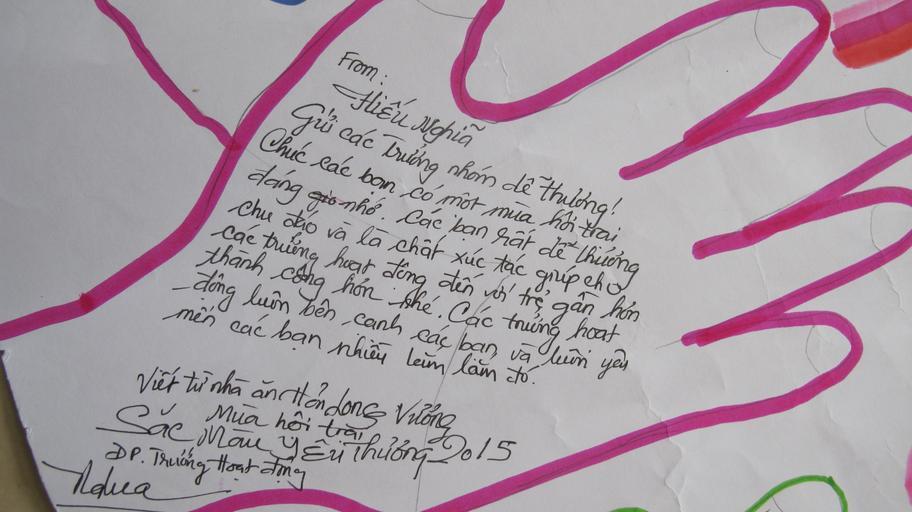 From:
Hiếu Nghĩa
Gửi các trưởng nhóm dễ thương!
Chúc các bạn có một mùa hội trại
đáng nhớ. Các bạn rất dễ thương
chu đáo và là chất xúc tác giúp cho
các trưởng hoạt động đến với trẻ gần hơn
thành công hơn nhé. Các trưởng hoạt
động luôn bên cạnh các bạn và luôn yêu
mến các bạn nhiều lắm lắm đó.
Viết từ nhà ăn Hồn dong Vương
Mùa hội trại
Sắc Màu Yêu Thương 2015
ĐP. Trưởng Hoạt động